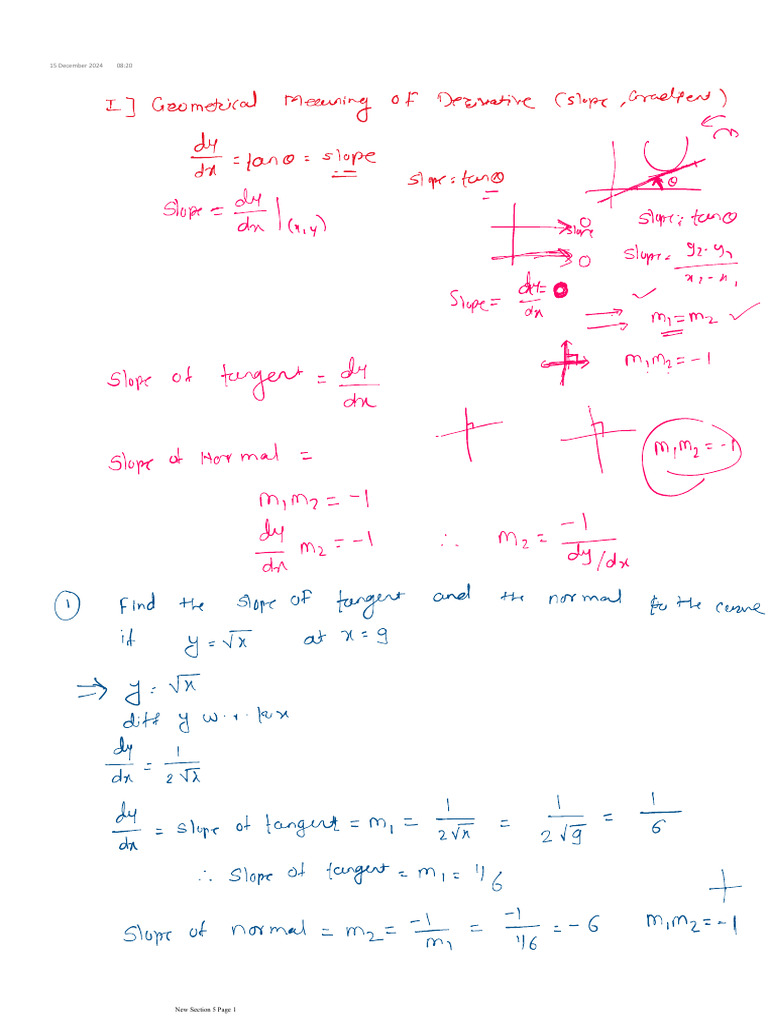 15 December 2024 08:20
I] Geometrical Meaning of Derivative (slope, Gradient)
dy/dx = tanθ = slope
slope = tanθ
θ
Slope = dy/dx |(x,y)
0
slope
0
slope = tanθ
slope = y2-y1/x2-x1
Slope = dy/dx = 0
m1 = m2
m1m2 = -1
Slope of tangent = dy/dx
m1m2 = -1
Slope of Normal =
m1m2 = -1
dy/dx m2 = -1 ∴ m2 = -1/dy/dx
1 Find the slope of tangent and the normal to the curve
if y = √x at x = 9
⇒ y = √x
diff y w.r. to x
dy/dx = 1/2√x
dy/dx = slope of tangent = m1 = 1/2√x = 1/2√9 = 1/6
∴ slope of tangent = m1 = 1/6
Slope of normal = m2 = -1/m1 = -1/1/6 = -6 m1m2 = -1
New Section 5 Page 1